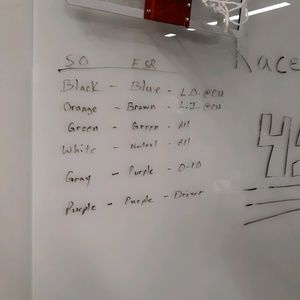 SO ESR
Black - Blue - L.O. @CU
Orange - Brown - L.I @CU
Green - Green - All
White - Neutral - All
Gray - Purple - 0-10
Purple - Purple - Driver
Race